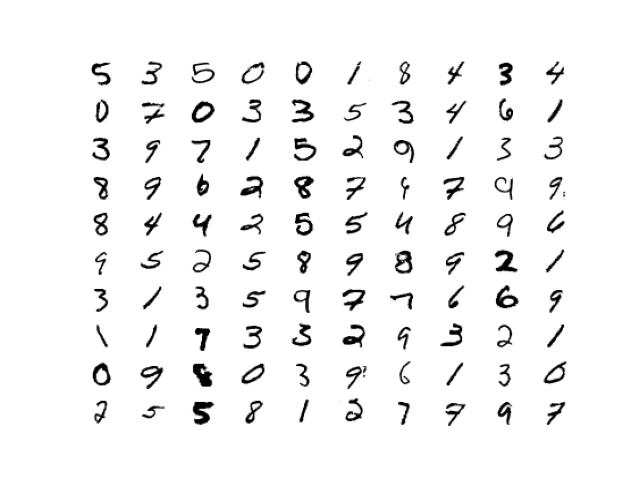 5 3 5 0 0 1 8 4 3 4
0 7 0 3 3 5 3 4 6 1
3 9 7 1 5 2 9 1 3 3
8 9 6 2 8 7 9 7 9 9
8 4 4 2 5 5 4 8 9 6
9 5 2 5 8 9 8 9 2 1
3 1 3 5 9 7 7 6 6 9
1 1 7 3 3 2 9 3 2 1
0 9 8 0 3 9 6 1 3 0
2 5 5 8 1 2 7 7 9 7